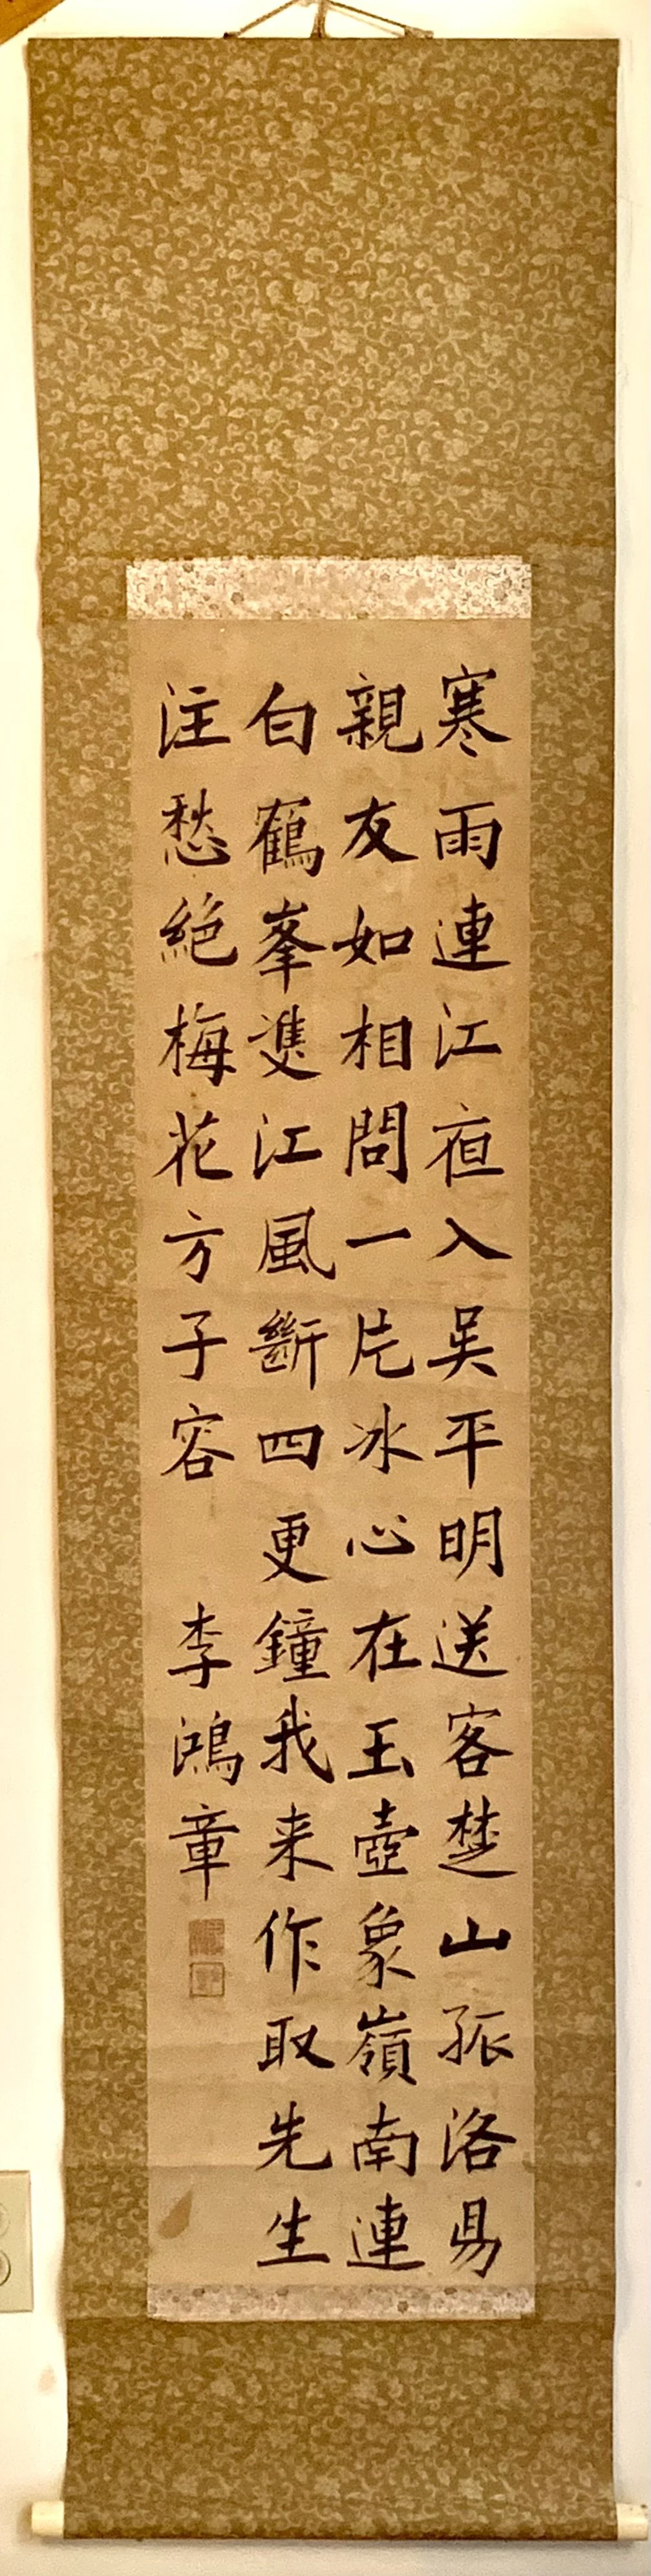 寒雨連江夜入吳平明送客楚山孤洛昜
親友如相問一片冰心在玉壺象嶺南連
白鶴峯雙江風斷四更鐘我来作取先生
注愁絕梅花方子容
李鴻章